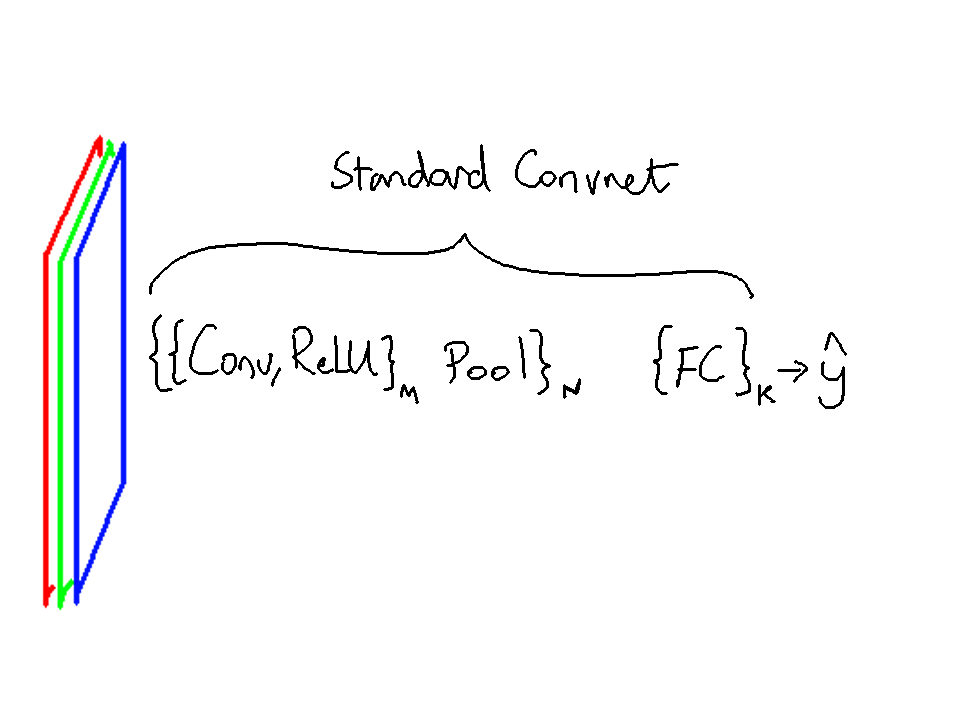 Standard Convnet
{{Conv, ReLU}M Pool}N {FC}K → ŷ